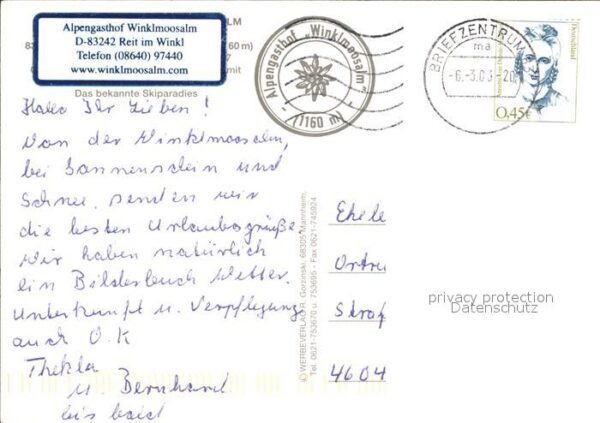 Alpengasthof Winklmoosalm
D-83242 Reit im Winkl
Telefon (08640) 97440
www.winklmoosalm.com
LM
83
60 m)
mit
Das bekannte Skiparadies
Alpengasthof „Winklmoosalm"
(1160 m)
BRIEFZENTRUM
ma
-6.-3.03-20
Deutschland
0,45€
Hallo Ihr Lieben!
Von der Winklmoosalm,
bei Sonnenschein und
Schnee, senden wir
die besten Urlaubsgrüße.
Wir haben natürlich
ein Bilderbuch Wetter.
Unterkunft u. Verpflegung
auch O.K
Thekla
u. Bernhard
bis bald
© WERBEVERLAG R. Gorzinski, 68305 Mannheim,
Tel. 0621-753670 u. 753695 - Fax 0621-745924
Ehele
Ortru
Straß
4604
privacy protection
Datenschutz